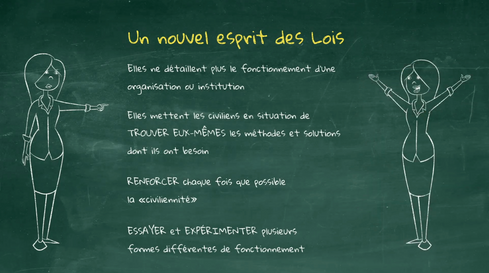 Un nouvel esprit des Lois
Elles ne détaillent plus le fonctionnement d'une
organisation ou institution
Elles mettent les civiliens en situation de
TROUVER EUX-MÊMES les méthodes et solutions
dont ils ont besoin
RENFORCER chaque fois que possible
la «civiliennité»
ESSAYER et EXPÉRIMENTER plusieurs
formes différentes de fonctionnement